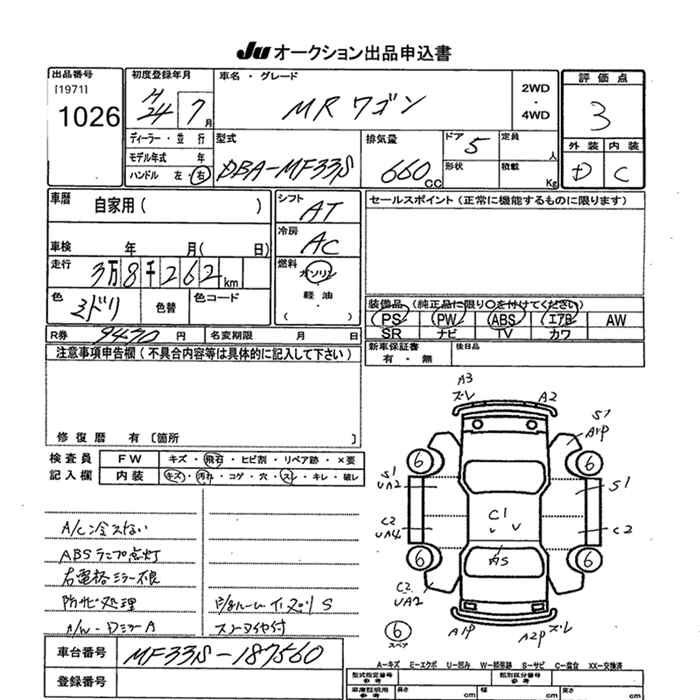 Ju オークション出品申込書
出品番号
[1971]
1026
初度登録年月
H24 7月
車名・グレード
MRワゴン
2WD
・
4WD
評価点
3
外装 内装
D C
ディーラー・並行
モデル年式 年
ハンドル 左・右
型式
DBA-MF33S
排気量
660 CC
ドア 5
形状
定員 人
積載 Kg
車歴
自家用( )
車検 年 月( 日)
走行
3万8千262km
色
ミドリ
色替
色コード
シフト
AT
冷房
AC
燃料
ガソリン
軽油
( )
セールスポイント(正常に機能するものに限ります)
装備品(純正品に限り〇を付けてください)
PS PW ABS エアB AW
SR ナビ TV カワ
R券 9470円 名変期限 月 日
新車保証書
有・無
後日品
注意事項申告欄(不具合内容等は具体的に記入して下さい)
修復歴 有〔箇所 〕
検査員
記入欄
FW キズ・飛石・ヒビ割・リペア跡・×要
内装 キズ・汚れ・コゲ・穴・スレ・キレ・破レ
A/C冷えない
ABSランプ点灯
右電格ミラー不良
防サビ処理
スタータイヤ付
A3
ズレ
A2
S1
A1P
6
6
S1
UA2
S1
C1
C2
UA4
C2
6
6
C2
UA2
6
スペア
A1P
A2P ズレ
車台番号 MF33S-187560
登録番号
A-キズ E-エクボ U-凹み W-補修跡 S-サビ C-腐食 XX-交換済
型式指定番号
参考
類別区分番号
参考
車庫証明用
参考
長さ cm 幅 cm 高さ cm